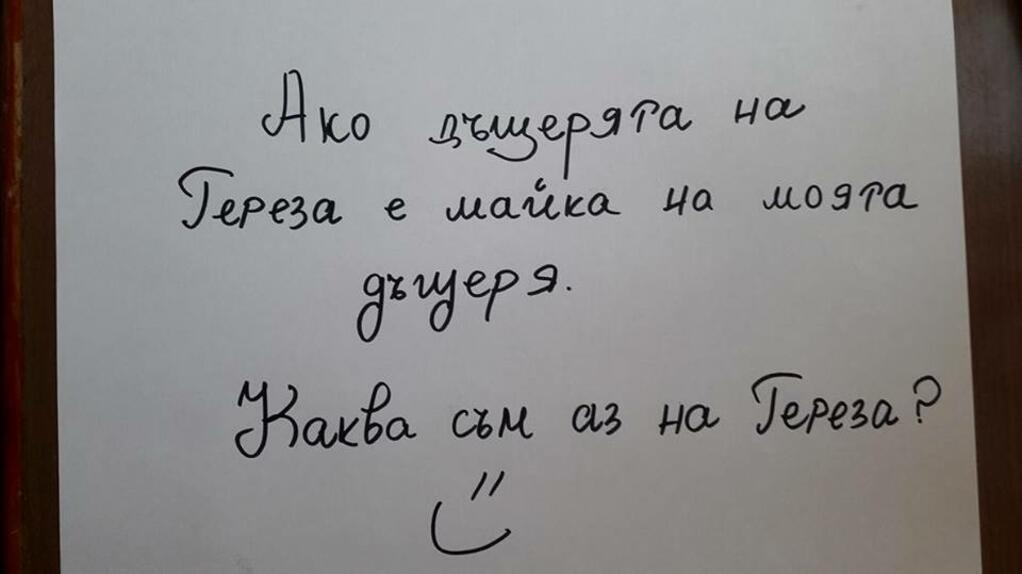 Ако дъщерята на
Тереза е майка на моята
дъщеря.
Каква съм аз на Тереза?